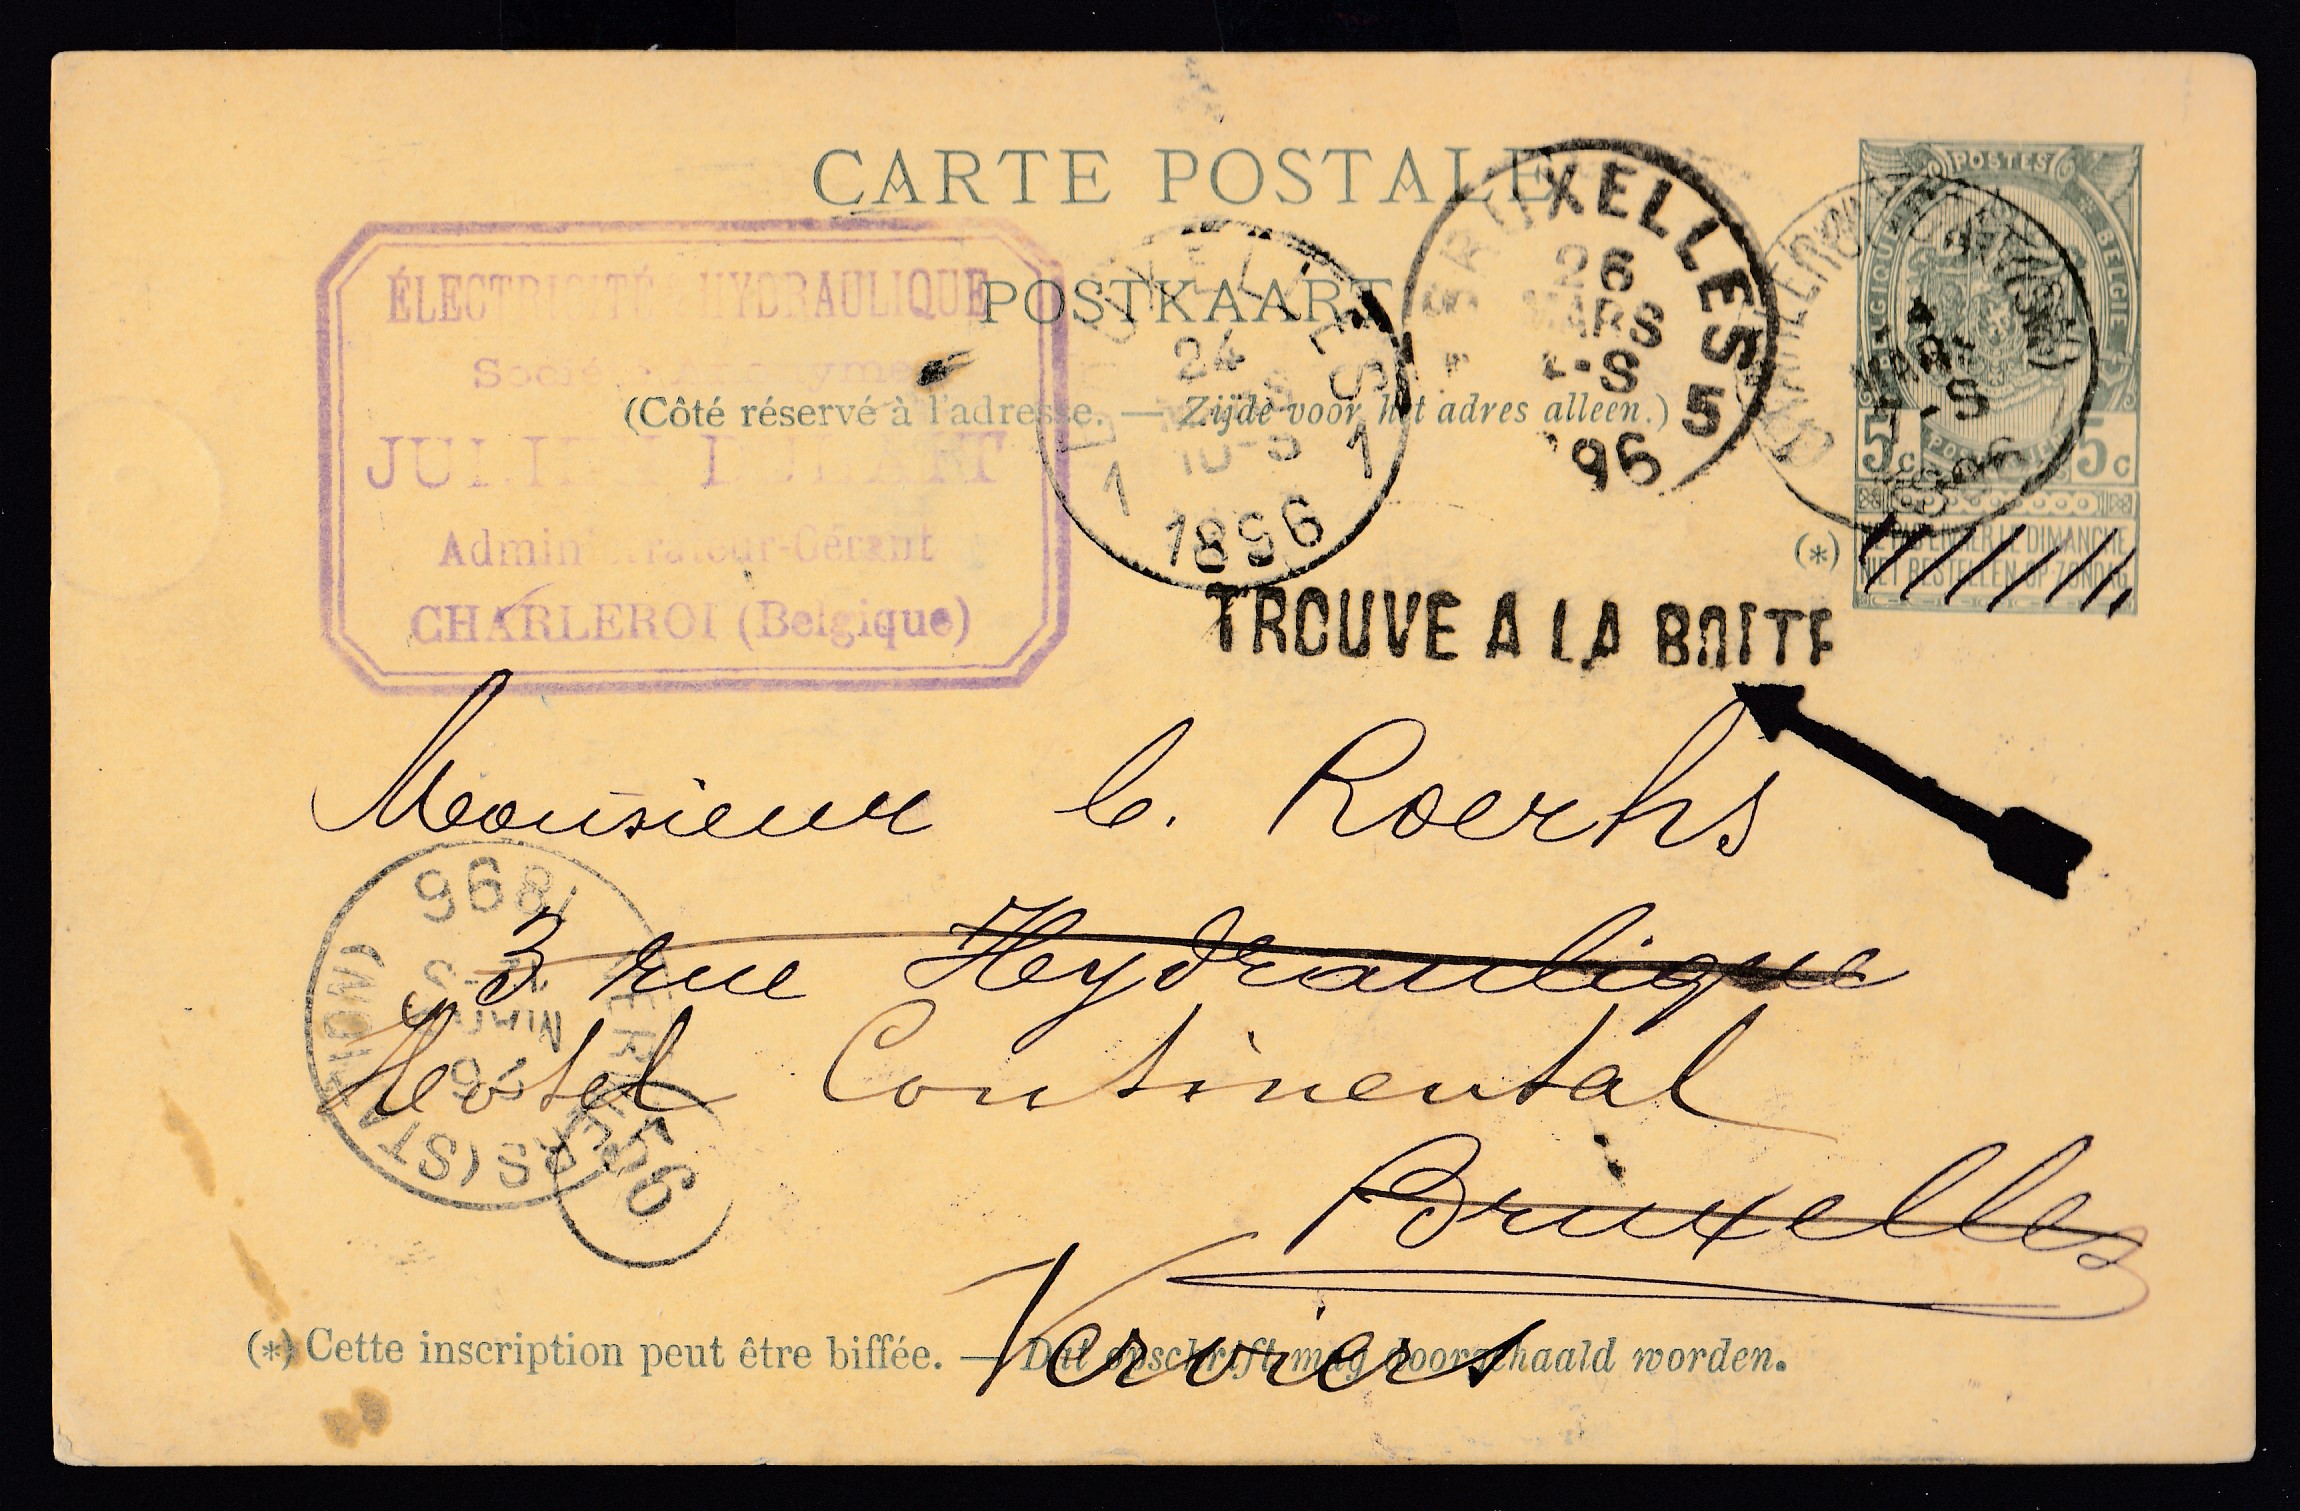 CARTE POSTALE
POSTKAART
(Côté réservé à l'adresse. — Zijde voor het adres alleen.)
ÉLECTRICITÉ & HYDRAULIQUE
Société Anonyme
JULIEN DULAIT
Administrateur-Gérant
CHARLEROI (Belgique)
BRUXELLES
24
10-S
1 1
1896
BRUXELLES 5
26
MARS
-S
96
POSTES
BELGIQUE BELGIE
5c 5c
CHARLEROI (STATION)
MARS
-S
1896
(*)
NE PAS LIVRER LE DIMANCHE
NIET BESTELLEN OP ZONDAG
TROUVE A LA BOITE
Monsieur C. Roerhs
3 rue Hydraulique
Hotel Continental
Bruxelles
Verviers
VERVIERS (STATION)
26
1896
56
(*) Cette inscription peut être biffée. — Dit opschrift mag doorgehaald worden.